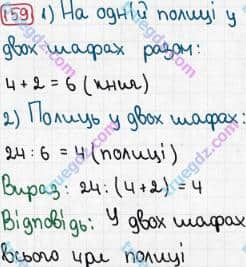 159 1) На одній полиці у
двох шафах разом:
4 + 2 = 6 (книг)
2) Полиць у двох шафах:
24 : 6 = 4 (полиці)
Вираз: 24 : (4 + 2) = 4
Відповідь: У двох шафах
всього чри полиці